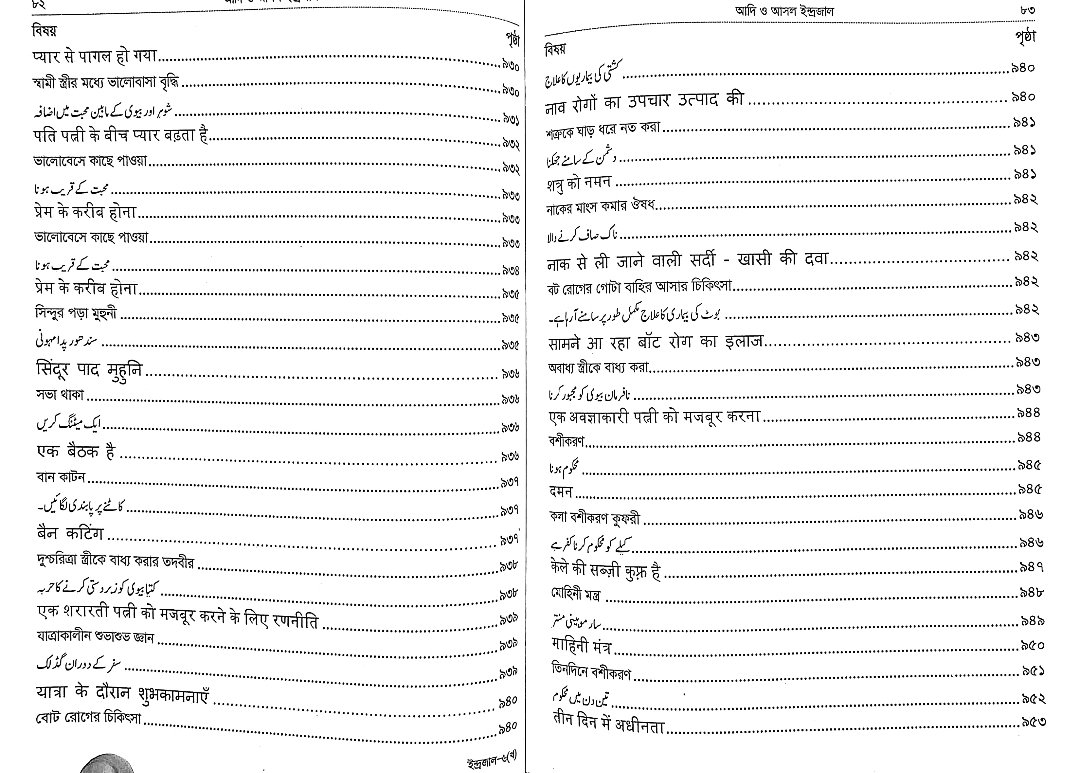 ৮২
বিষয়
পৃষ্ঠা
प्यार से पागल हो गया ৯৩০
স্বামী স্ত্রীর মধ্যে ভালোবাসা বৃদ্ধি ৯৩০
شوہر اور بیوی کے مابین محبت میں اضافہ ৯৩১
पति पत्नी के बीच प्यार बढ़ता है ৯৩২
ভালোবেসে কাছে পাওয়া ৯৩২
محبت کے قریب ہونا ৯৩৩
प्रेम के करीब होना ৯৩৩
ভালোবেসে কাছে পাওয়া ৯৩৩
محبت کے قریب ہونا ৯৩৪
प्रेम के करीब होना ৯৩৫
সিন্দুর পড়া মুহুনী ৯৩৫
سندھور پدا مہونی ৯৩৫
सिंदूर पाद मुहुनि ৯৩৬
সভা থাকা ৯৩৬
ایک میٹنگ کریں ৯৩৬
एक बैठक है ৯৩৬
বান কাটন ৯৩৭
کاٹنے پر پابندی لگائیں۔ ৯৩৭
बैन कटिंग ৯৩৭
দুশ্চরিত্রা স্ত্রীকে বাধ্য করার তদবীর ৯৩৮
کتیا بیوی کو زبردستی کرنے کا حربہ ৯৩৮
एक शरारती पत्नी को मजबूर करने के लिए रणनीति ৯৩৯
যাত্রাকালীন শুভাশুভ জ্ঞান ৯৩৯
سفر کے دوران گڈ لک ৯৩৯
यात्रा के दौरान शुभकामनाएँ ৯৪০
বোট রোগের চিকিৎসা ৯৪০
ইন্দ্রজাল-৬(খ)
আদি ও আসল ইন্দ্রজাল
৮৩
বিষয়
পৃষ্ঠা
کشتی کی بیماریوں کا علاج ৯৪০
नाव रोगों का उपचार उत्पाद की ৯৪০
শত্রুকে ঘাড় ধরে নত করা ৯৪১
دشمن کے سامنے جھکنا ৯৪১
शत्रु को नमन ৯৪১
নাকের মাংস কমার ঔষধ ৯৪২
ناک صاف کرنے والا ৯৪২
नाक से ली जाने वाली सर्दी - खासी की दवा ৯৪২
বট রোগের গোটা বাহির আসার চিকিৎসা ৯৪২
بوٹ کی بیماری کا علاج مکمل طور پر سامنے آرہا ہے۔ ৯৪২
सामने आ रहा बॉट रोग का इलाज ৯৪৩
অবাধ্য স্ত্রীকে বাধ্য করা ৯৪৩
نافرمان بیوی کو مجبور کرنا ৯৪৩
एक अवज्ञाकारी पत्नी को मजबूर करना ৯৪৪
বশীকরণ ৯৪৪
محکوم ہونا ৯৪৫
दमन ৯৪৫
কলা বশীকরণ কুফরী ৯৪৬
کیلے کو محکوم کرنا کفر ہے ৯৪৬
केले की सब्ज़ी कुफ़्र है ৯৪৭
মোহিনী মন্ত্র ৯৪৮
سار موہینی منتر ৯৪৯
माहिनी मंत्र ৯৫০
তিনদিনে বশীকরণ ৯৫১
تین دن میں محکوم ৯৫২
तीन दिन में अधीनता ৯৫৩